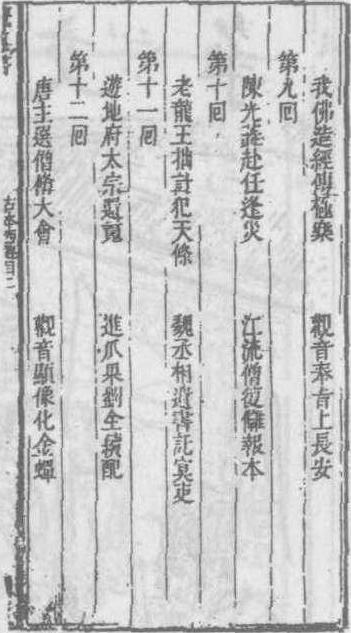 我佛造經傳極樂　觀音奉旨上長安
第九回
陳光蕊赴任逢災　江流僧復讎報本
第十回
老龍王拙計犯天條　魏丞相遺書託冥吏
第十一回
遊地府太宗還魂　進瓜果劉全續配
第十二回
唐主選僧脩大會　觀音顯像化金蟬
目二